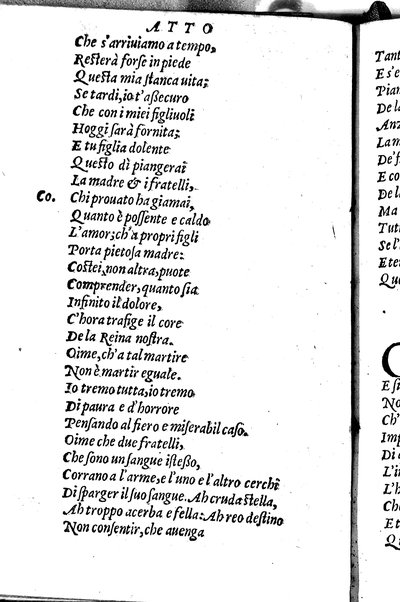 ATTO
Che s'arriuiamo a tempo,
Resterà forse in piede
Questa mia stanca uita;
Se tardi, io t'assecuro
Che con i miei figliuoli
Hoggi sarà fornita;
E tu figlia dolente
Questo dì piangerai
La madre & i fratelli,
Co. Chi prouato ha giamai,
Quanto è possente e caldo
L'amor; ch'a propri figli
Porta pietosa madre:
Costei, non altra, puote
Comprender, quanto sia
Infinito il dolore,
C'hora trafige il core
De la Reina nostra.
Oime, ch'a tal martire
Non è martir eguale.
Io tremo tutta, io tremo
Di paura e d'horrore
Pensando al fiero e miserabil caso.
Oime che due fratelli,
Che sono un sangue istesso,
Corrano a l'arme, e l'uno e l'altro cerchi
Di sparger il suo sangue. Ah cruda stella,
Ah troppo acerba e fella: Ah reo destino
Non consentir, che auenga
Tant
E s'e
Pian
De la
Anz
La m
De' f
E co
De l
Ma
Tutt
Se l'
Ete
Que
C
E si
Non
Ch'
Imp
Di
L'in
L'h
Che
Et
Q